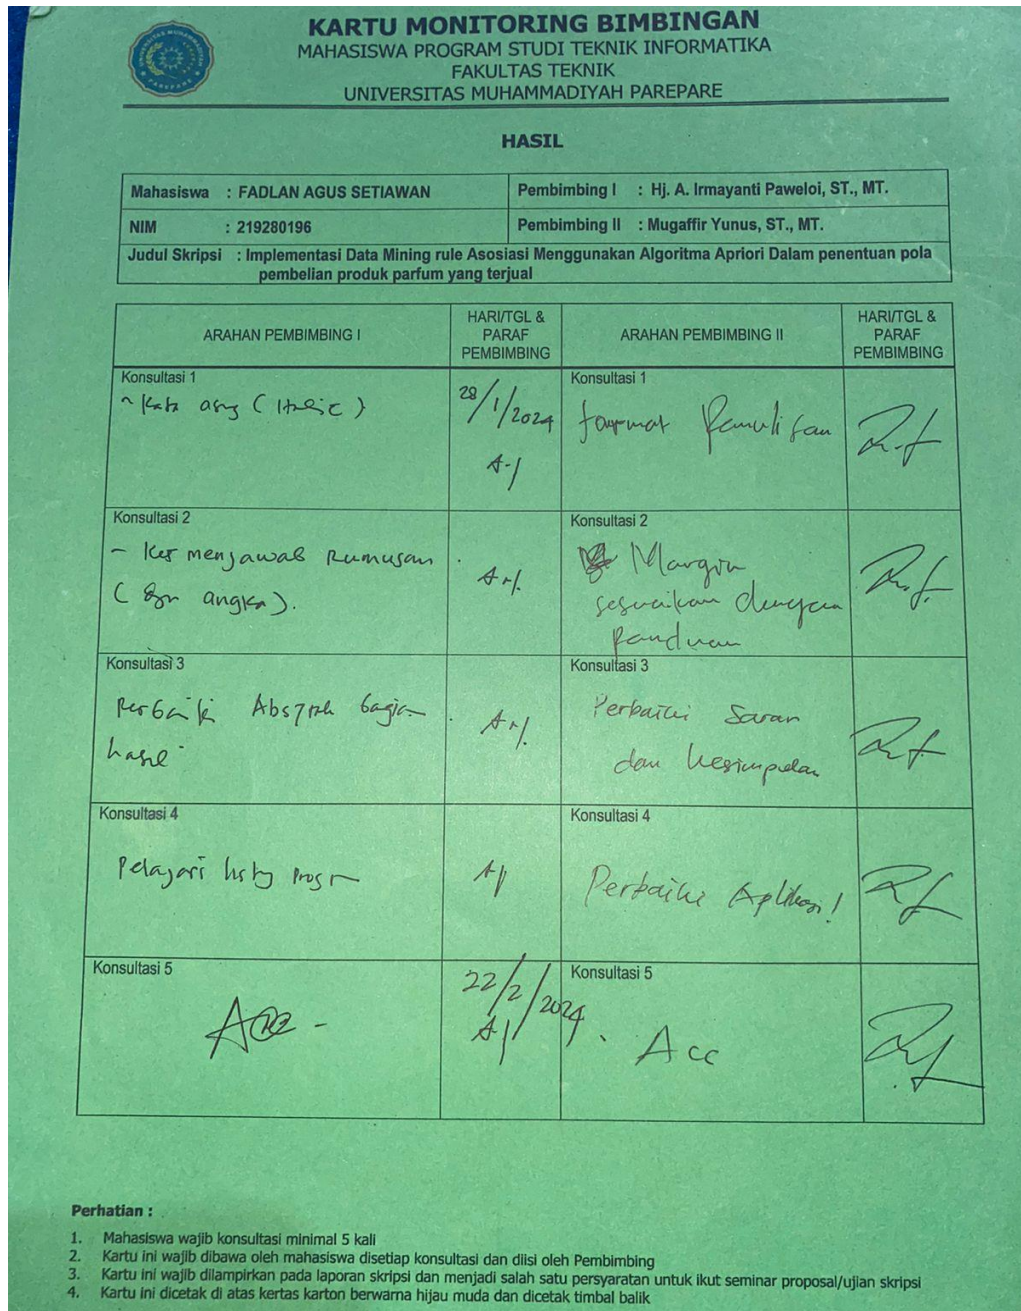 KARTU MONITORING BIMBINGAN
MAHASISWA PROGRAM STUDI TEKNIK INFORMATIKA
FAKULTAS TEKNIK
UNIVERSITAS MUHAMMADIYAH PAREPARE
HASIL
Mahasiswa : FADLAN AGUS SETIAWAN
Pembimbing I : Hj. A. Irmayanti Paweloi, ST., MT.
NIM : 219280196
Pembimbing II : Mugaffir Yunus, ST., MT.
Judul Skripsi : Implementasi Data Mining rule Asosiasi Menggunakan Algoritma Apriori Dalam penentuan pola
pembelian produk parfum yang terjual
ARAHAN PEMBIMBING I
HARI/TGL &
PARAF
PEMBIMBING
ARAHAN PEMBIMBING II
HARI/TGL &
PARAF
PEMBIMBING
Konsultasi 1
- Kata asing (Italic)
28/1/2024
Konsultasi 1
format Penulisan
Konsultasi 2
- Kes menjawab Rumusan
( angka).
Konsultasi 2
Margin
sesuaikan dengan
Panduan
Konsultasi 3
Perbaiki Abstrak bagian
hasil
Konsultasi 3
Perbaiki Saran
dan Kesimpulan
Konsultasi 4
Pelajari
Konsultasi 4
Perbaiki Aplikasi!
Konsultasi 5
Acc -
22/2/2024
Konsultasi 5
Acc
Perhatian :
1. Mahasiswa wajib konsultasi minimal 5 kali
2. Kartu ini wajib dibawa oleh mahasiswa disetiap konsultasi dan diisi oleh Pembimbing
3. Kartu ini wajib dilampirkan pada laporan skripsi dan menjadi salah satu persyaratan untuk ikut seminar proposal/ujian skripsi
4. Kartu ini dicetak di atas kertas karton berwarna hijau muda dan dicetak timbal balik